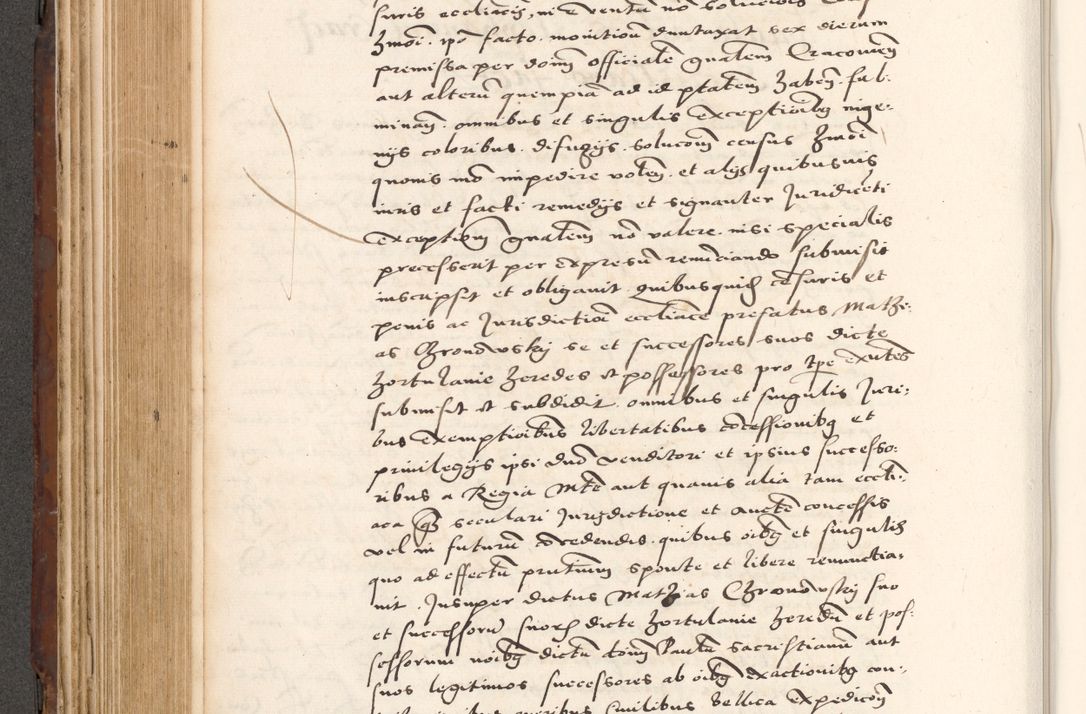 suris eccliacis, ni e ventu no solucio
Hmoi. ipo facto. monition duntaxat sex dierum
premissa per donm officiale gnalem Cracovien
aut alteru quempia ad id ptatem haben. ful-
minan. omnibus et singulis exceptioibq inge-
nijs coloribus. difugijs. solucom census Hmoi
quovis mo impedire volen. et alijs quibusvis
iuris et facti remedijs et signanter Juridiceti
exceptiom gnalem no valere. nisi specialis
precesserit per expresu renuciando submisit
inscripsit et obligavit. quibusquid cesuris et
penis ac Jurisdictioi eccliace prefatus Mathi-
as Chronowskij se et successores suos dicte
hortulanie heredes et possessores pro tpe exntes
submisit et subdidit. omnibus et singulis Juri-
bus exemptioibus libertatibus cocessionibq et
privilegijs ipsi dno venditori et ipsius successo-
ribus a Regia Mte aut quavis alia tam eccli-
aca q seculari Jurisdictione et aucte concessis
vel in futuru cocedendis. quibus oibq et singulis
quo ad effectu pntium sponte et libere renunctia-
vit. Insuper dictus Mathias Chronowskij suo
et successoru suor dicte hortulanie heredu et pos-
sessorum noibq dictu donm Paulu sacristianu aut
suos legitimos successores ab oibq exactionibq con-
bellica expedicon